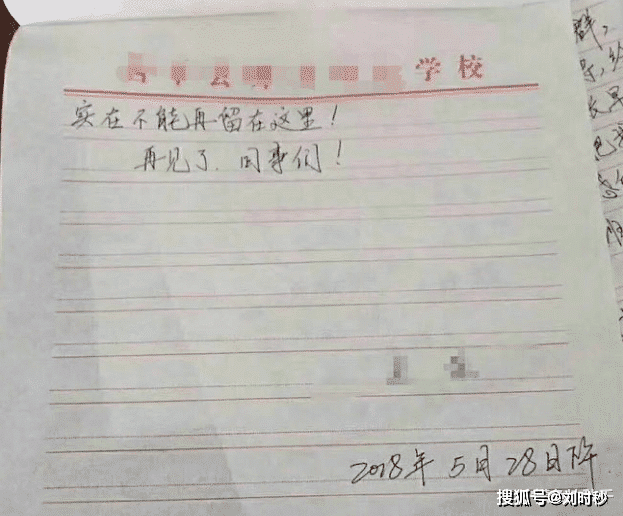 学校
实在不能再留在这里！
再见了、同事们！
2018年5月28日
搜狐号@刘时秒